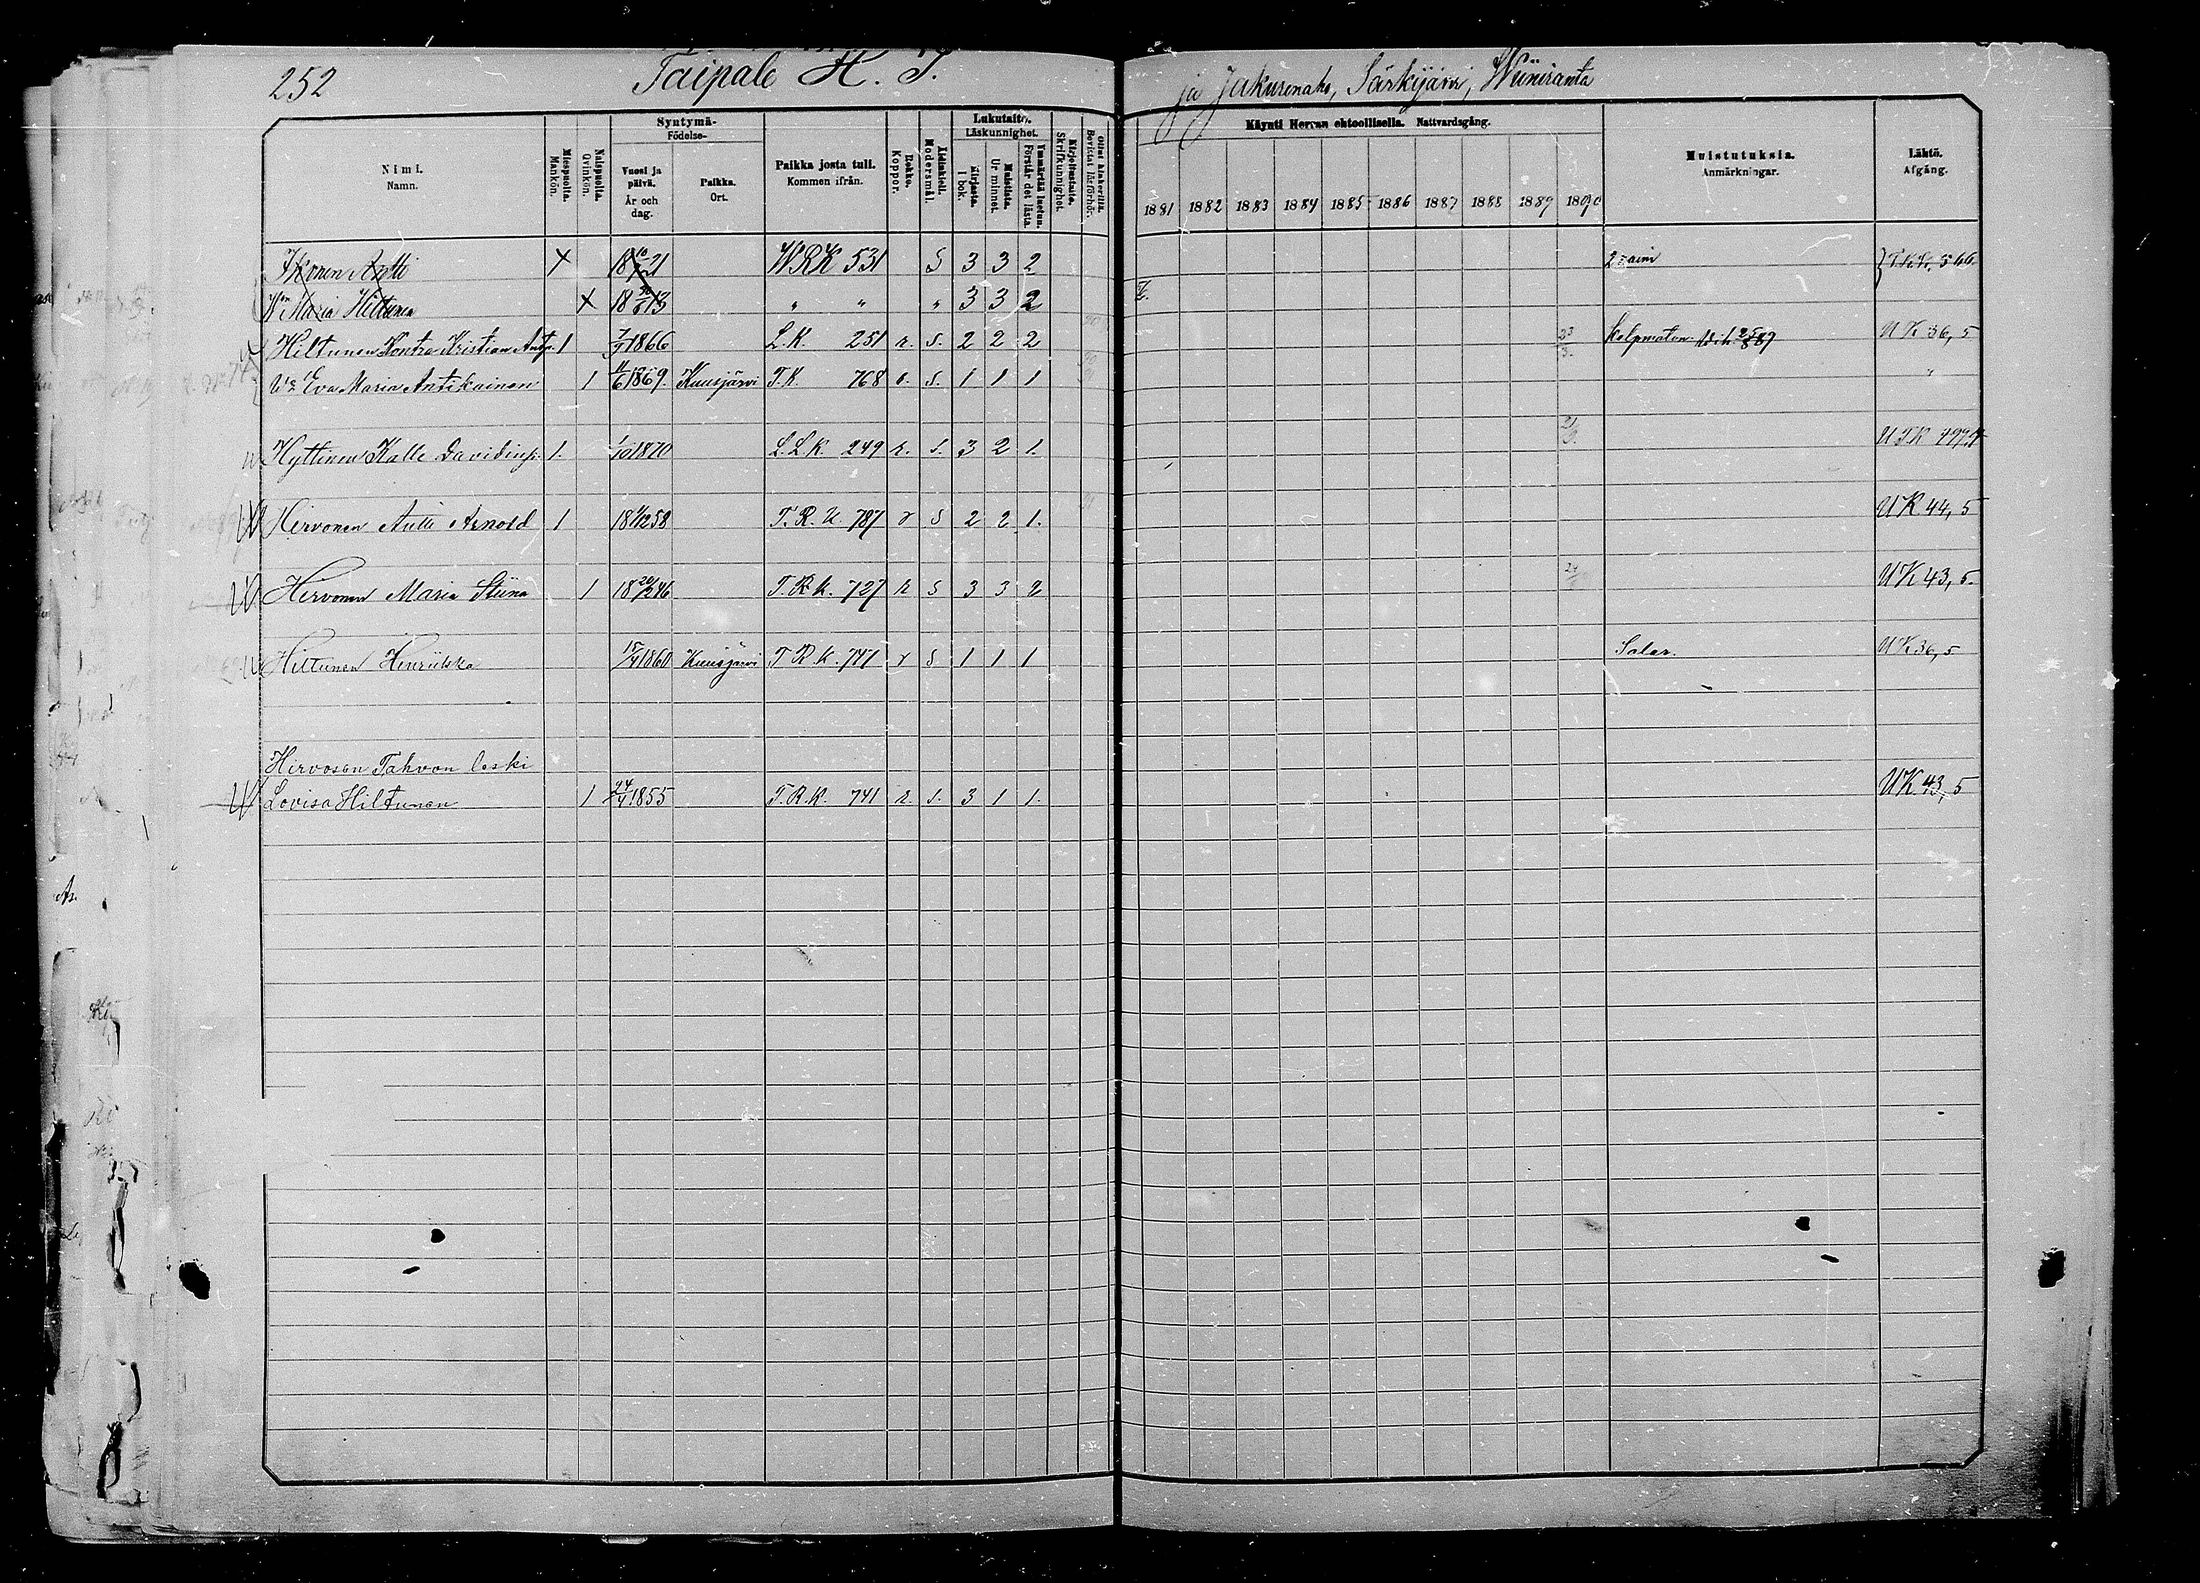 252 Taipale H. I. ja Jakurinaho, Särkijärvi, Wiiniranta
Nimi. Namn.
Miespuolta. Mankön.
Naispuolta. Qvinkön.
Syntymä- Födelse-
Vuosi ja päivä. År och dag.
Paikka. Ort.
Paikka josta tuli. Kommen ifrån.
Rokko. Koppor.
Äidinkieli. Modersmål.
Lukutaito. Läskunnighet.
Kirjasta. I bok.
Muistista. Ur minnet.
Ymmärtää luetun. Förstår det lästa.
Kirjoitustaito. Skrifkunnighet.
Käynti Herran ehtoollisella. Nattvardsgång.
1881 1882 1883 1884 1885 1886 1887 1888 1889 1890
Muistutuksia. Anmärkningar.
Lähtö. Afgång.
Ikonen Antti X 18 21 WRK 531 S 3 3 2 T.K. 566
Wm Maria Hiltunen X 18 13 " " " 3 3 2
Hiltunen Kontra Kristian Antp. 1 7/9 1866 L.K. 251 r. s. 2 2 2 23/3 Kelpmaton U K 36, 5
Vo Eva Maria Antikainen 1 11/6 1869. Kuusjärvi T.K. 768 r. s. 1 1 1 "
Hyttinen Kalle Davidinp. 1. 1/10 1870 L.L.K. 249 r. s. 3 2 1.
Hirvonen Antti Arnold 1 18 58 T.R.K. 787 r s 2 2 1. U K 44, 5
Hirvonen Maria Stiina 1 18 46 T.R.K. 727 r s 3 3 2 U K 43, 5.
Hiltunen Henriikka 15/4 1860 Kuusjärvi T R K. 741 r s 1 1 1 Salar. U K 36, 5
Hirvosen Tahvon leski
Lovisa Hiltunen 1 24/4 1855 T.R.K. 741 r. s. 3 1 1. U K 43, 5